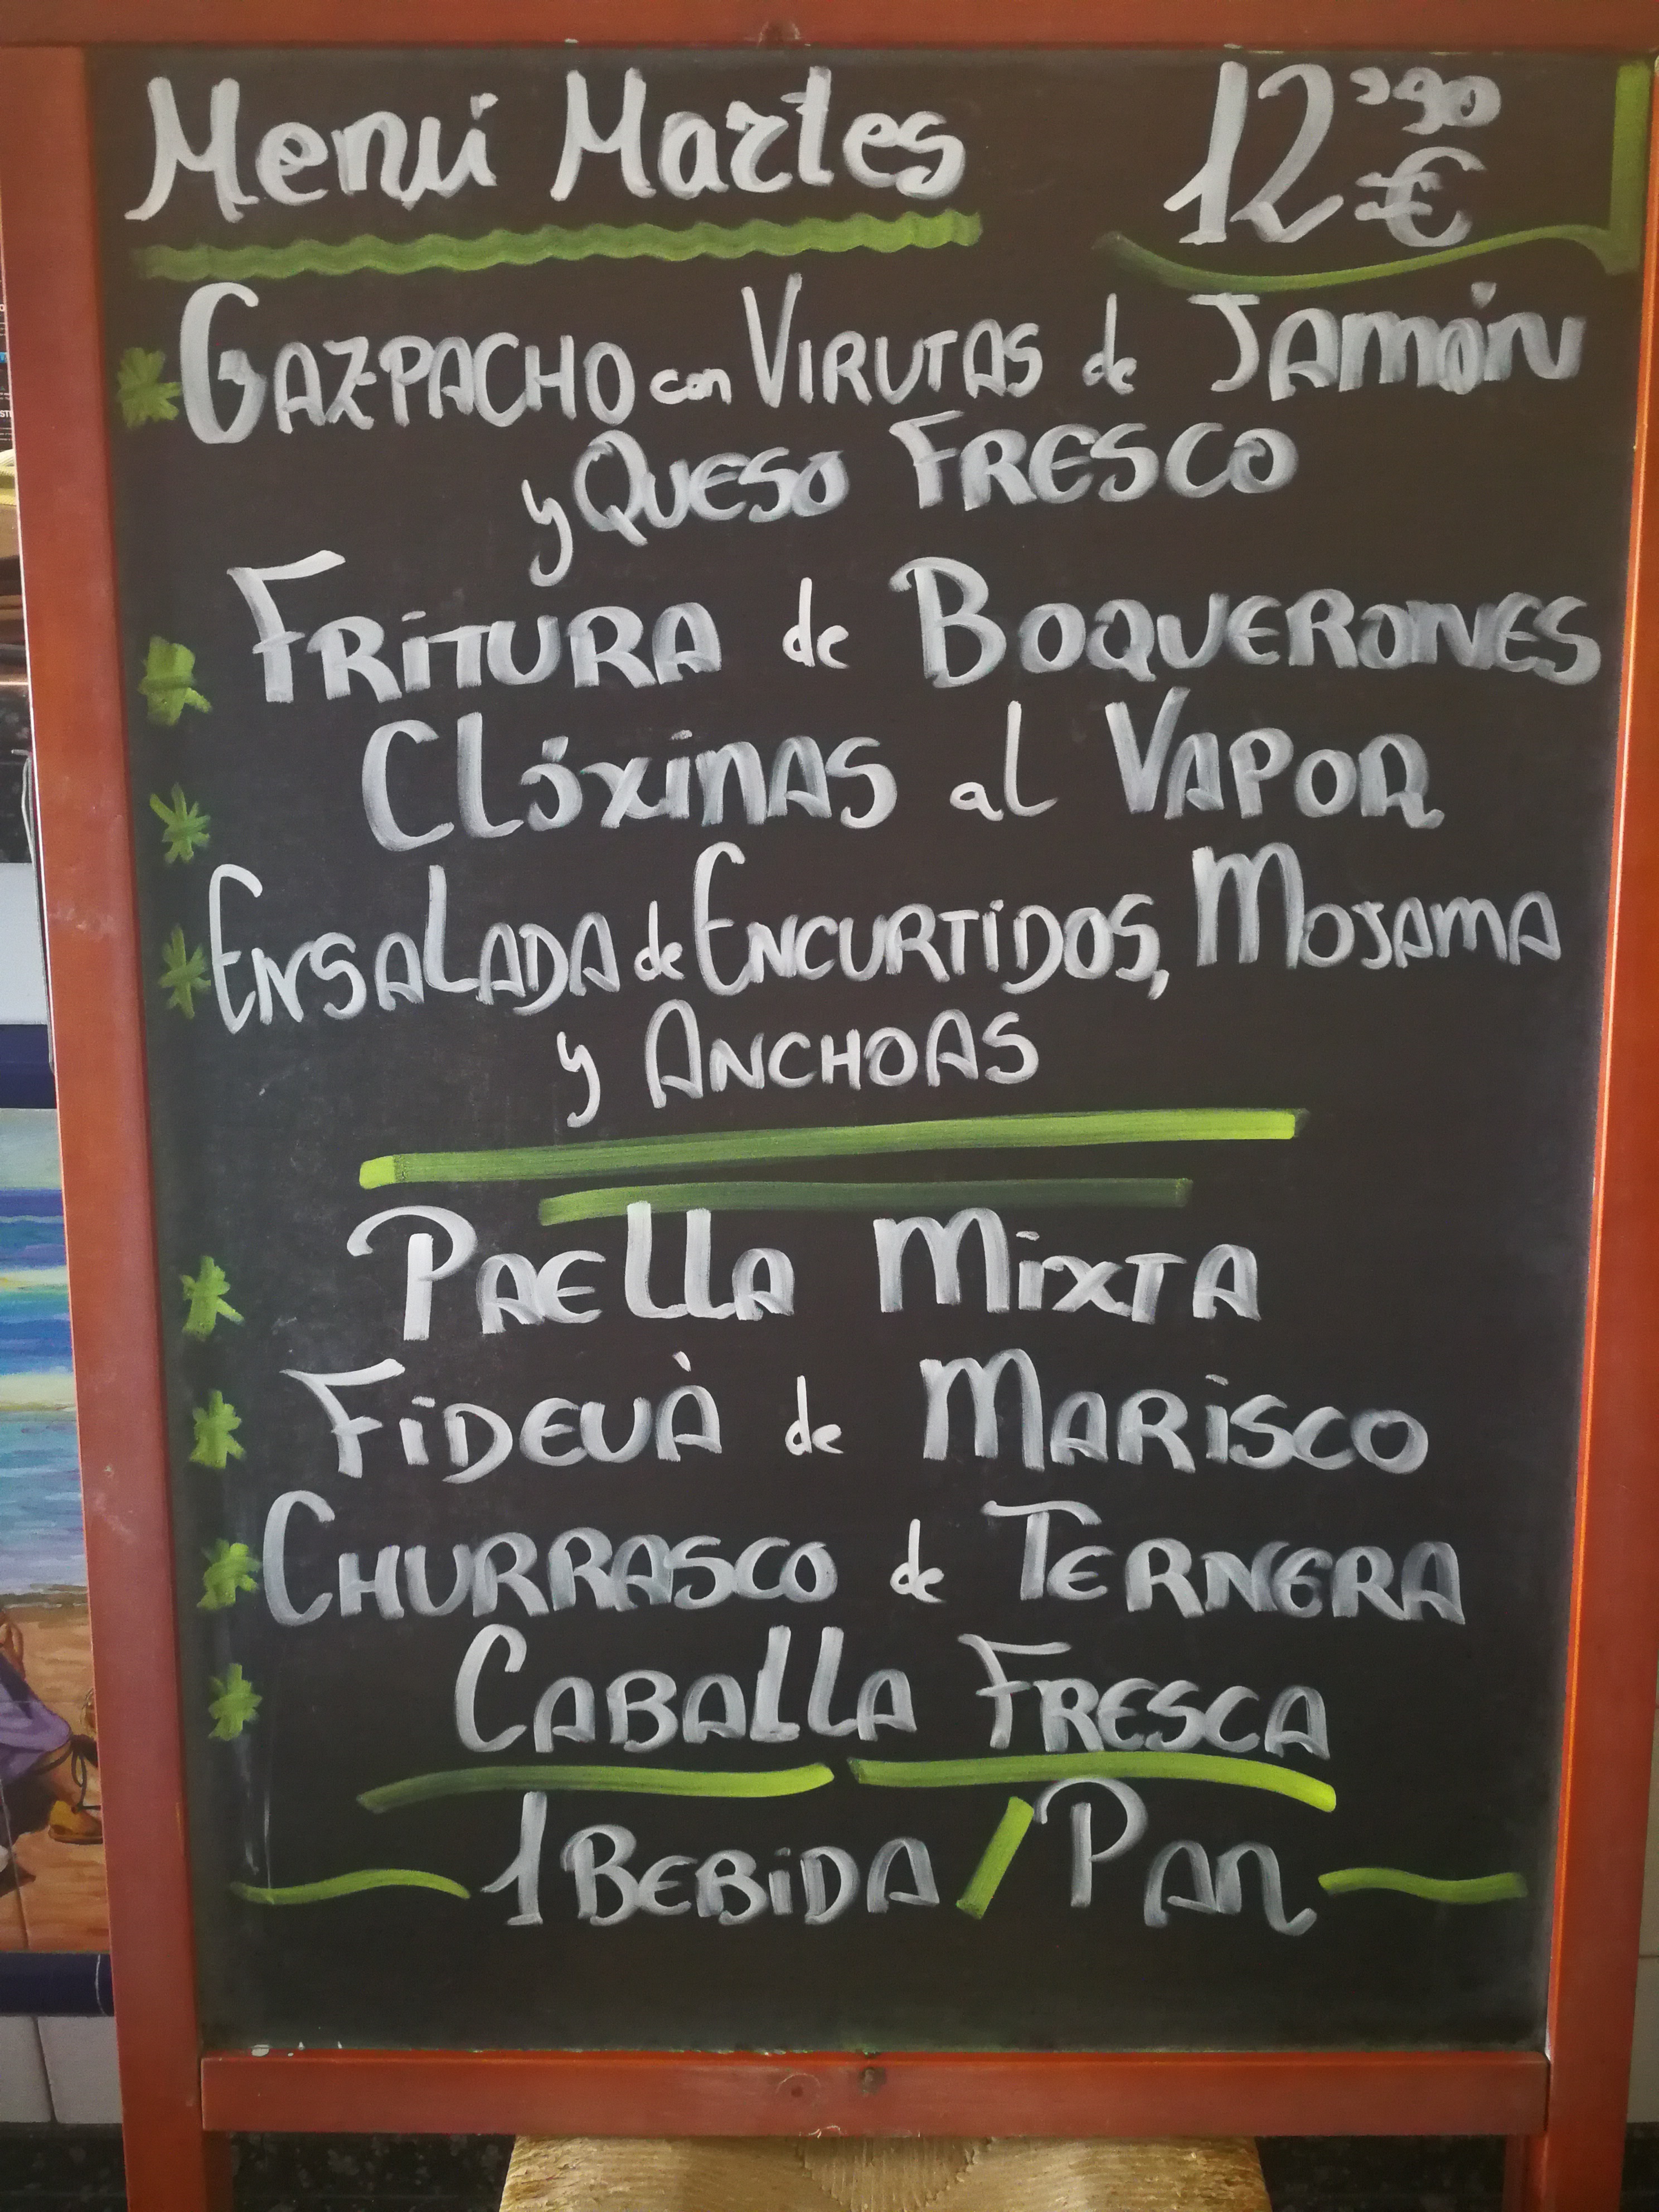 Menú Martes 12'90 €
* GAZPACHO con VIRUTAS de JAMóN
y QUESO FRESCO
* FRiTURA de BOQUERONES
* CLóxiNAS al VAPOR
* ENSALADA de ENCURTiDOS, MOJAMA
y ANCHOAS
* PAELLA MixTA
* FiDEUÀ de MARiSCO
* CHURRASCO de TERNERA
* CABALLA FRESCA
1 BEBiDA / PAN